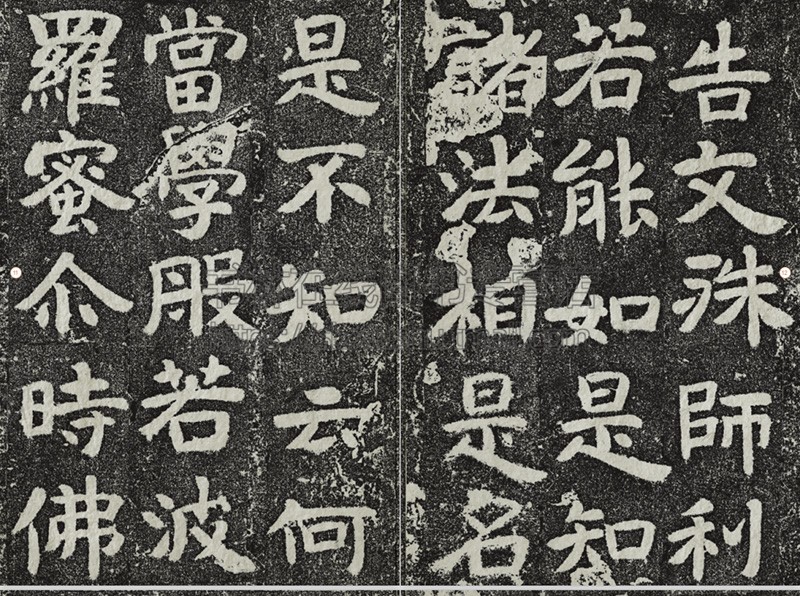 告文殊師利
若能如是知
諸法相是名
是不知云何
當學般若波
羅蜜尒時佛